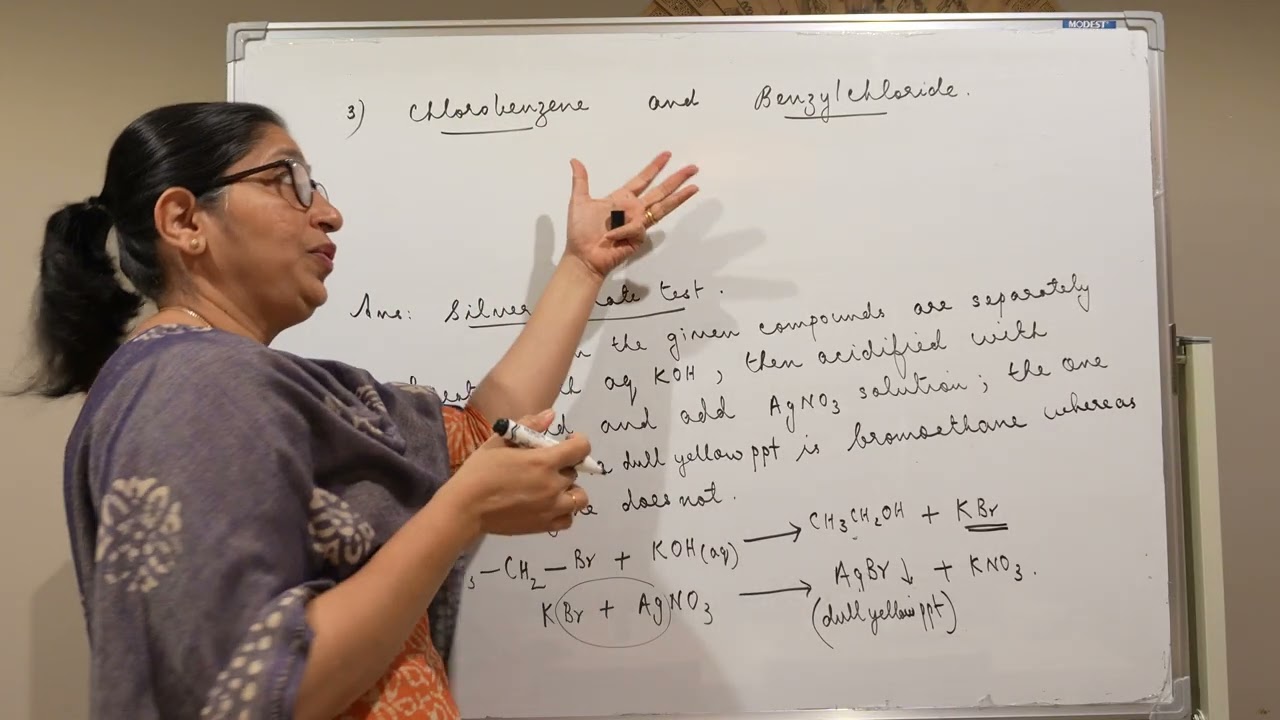 MODEST
3) Chlorobenzene and Benzylchloride.
Ans: Silver test.
the given compounds are separately
aq KOH, then acidified with
and add AgNO3 solution; the one
dull yellow ppt is bromoethane whereas
does not.
—CH2—Br + KOH(aq) ⟶ CH3CH2OH + KBr
KBr + AgNO3 ⟶ AgBr↓ + KNO3.
(dull yellow ppt)